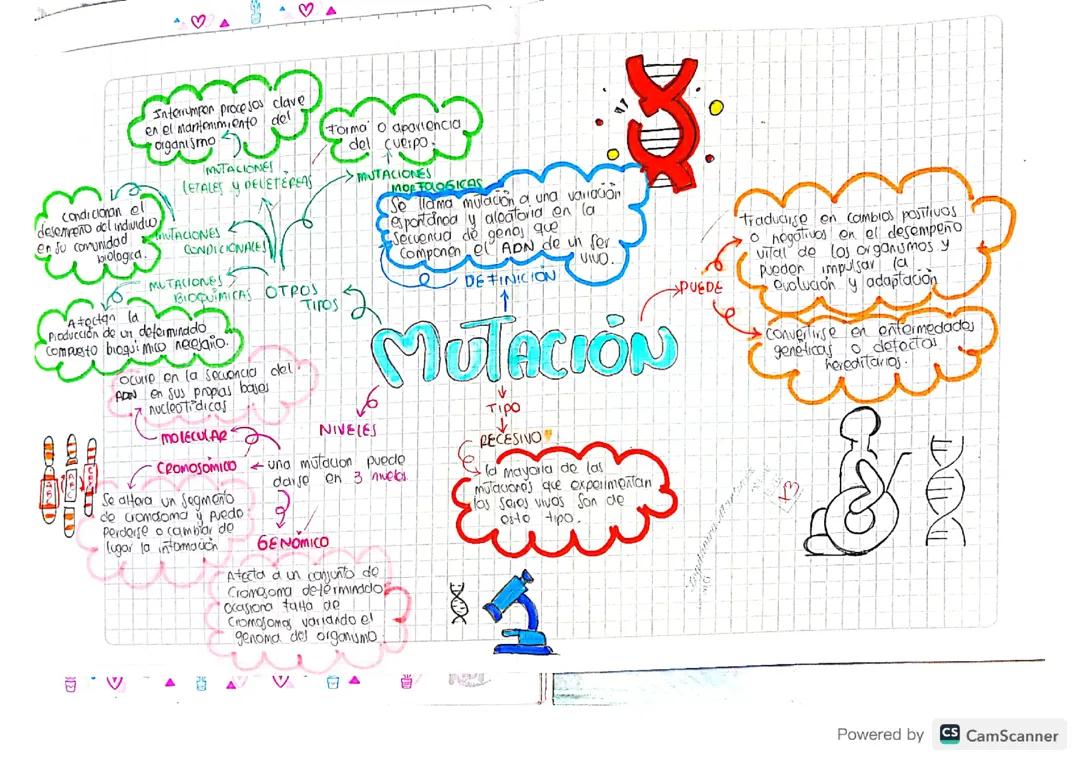 Interrumpen procesos clave
en el mantenimiento del
organismo
Forma o apariencia
del cuerpo.
MUTACIONES
LETALES Y DELETÉREAS
MUTACIONES
MORFOLOGICAS
Condicionan el
desempeño del individuo
en su comunidad
biologica.
MUTACIONES
CONDICIONALES
MUTACIONES
BIOQUÍMICAS
Afectan la
producción de un determinado
compuesto bioquímico necesario.
OTROS
TIPOS
Se llama mutación a una variación
espontánea y aleatoria en la
secuencia de genes que
componen el ADN de un ser
vivo.
DEFINICIÓN
MUTACIÓN
PUEDE
Traducirse en cambios positivos
o negativos en el desempeño
vital de los organismos y
pueden impulsar la
evolución y adaptación
Convertirse en enfermedades
geneticas o defectos
hereditarios.
NIVELES
una mutacion puede
darse en 3 niveles
MOLECULAR
Ocurre en la secuencia del
ADN en sus propias bases
nucleotídicas
CROMOSÓMICO
Se altera un segmento
de cromosoma y puede
perderse o cambiar de
lugar la infomación
GENÓMICO
Afecta a un conjunto de
cromosoma determinado
ocasiona falta de
cromosomas variando el
genoma del organismo.
TIPO
RECESIVO
la mayoria de las
mutaciones que experimentan
los seres vivos son de
este tipo.
Powered by CS CamScanner